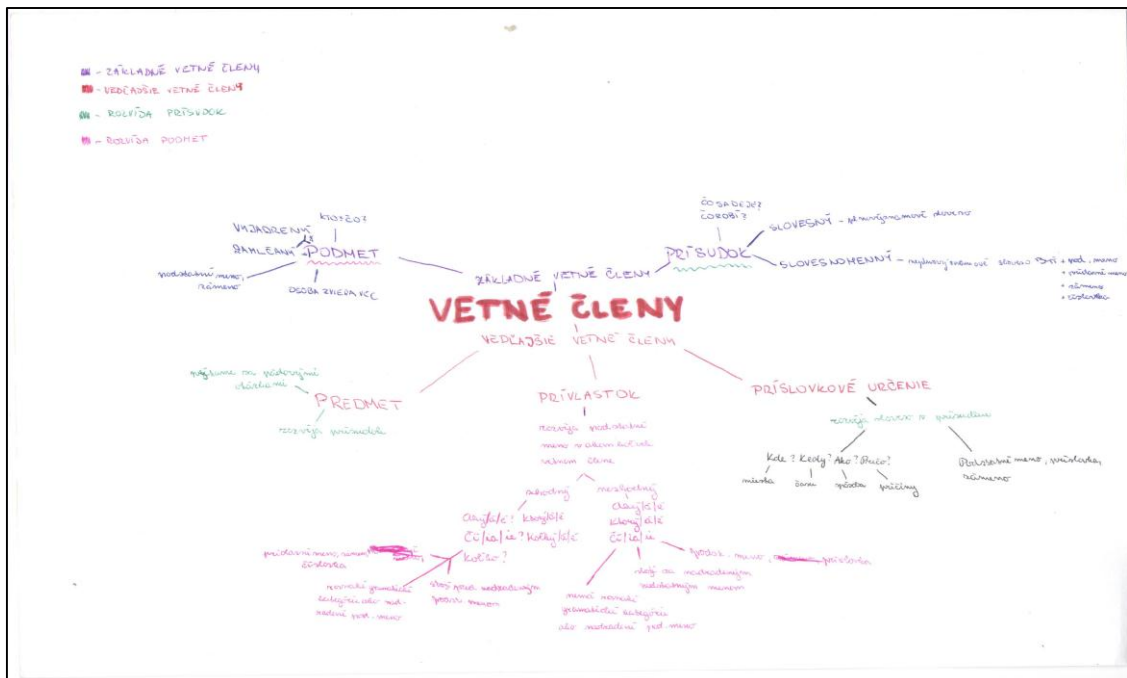 - ZÁKLADNÉ VETNÉ ČLENY
- VEDĽAJŠIE VETNÉ ČLENY
- ROZVÍJA PRÍSUDOK
- ROZVÍJA PODMET
KTO? ČO?
VYJADRENÝ
ZAMLČANÝ
PODMET
podstatné meno,
zámeno
OSOBA ZVIERA VEC
ČO SA DEJE?
ČO ROBÍ?
PRÍSUDOK
SLOVESNÝ - plnovýznamové sloveso
SLOVESNOMENNÝ - neplnovýznamové sloveso
+ pod. meno
+ prídavné meno
+ zámeno
+ číslovka
ZÁKLADNÉ VETNÉ ČLENY
VETNÉ ČLENY
VEDĽAJŠIE VETNÉ ČLENY
pýtame sa pádovými
otázkami
PREDMET
rozvíja prísudok
PRÍVLASTOK
rozvíja podstatné
meno v akomkoľvek
vetnom člene
zhodný
Aký/á/é? Ktorý/á/é
Čí/ia/ie? Koľký/á/é
Koľko?
prídavné meno, zámeno,
číslovka
rovnaké gramatické
kategórie ako nad-
radené pod. meno
stojí pred nadradeným
podst. menom
nezhodný
Aký/á/é
Ktorý/á/é
Čí/ia/ie
podst. meno, príslovka
stojí za nadradeným
podstatným menom
nemá rovnaké
gramatické kategórie
ako nadradené pod. meno
PRÍSLOVKOVÉ URČENIE
rozvíja sloveso v prísudku
Kde? Kedy? Ako? Prečo?
miesta času spôsobu príčiny
Podstatné meno, príslovka,
zámeno